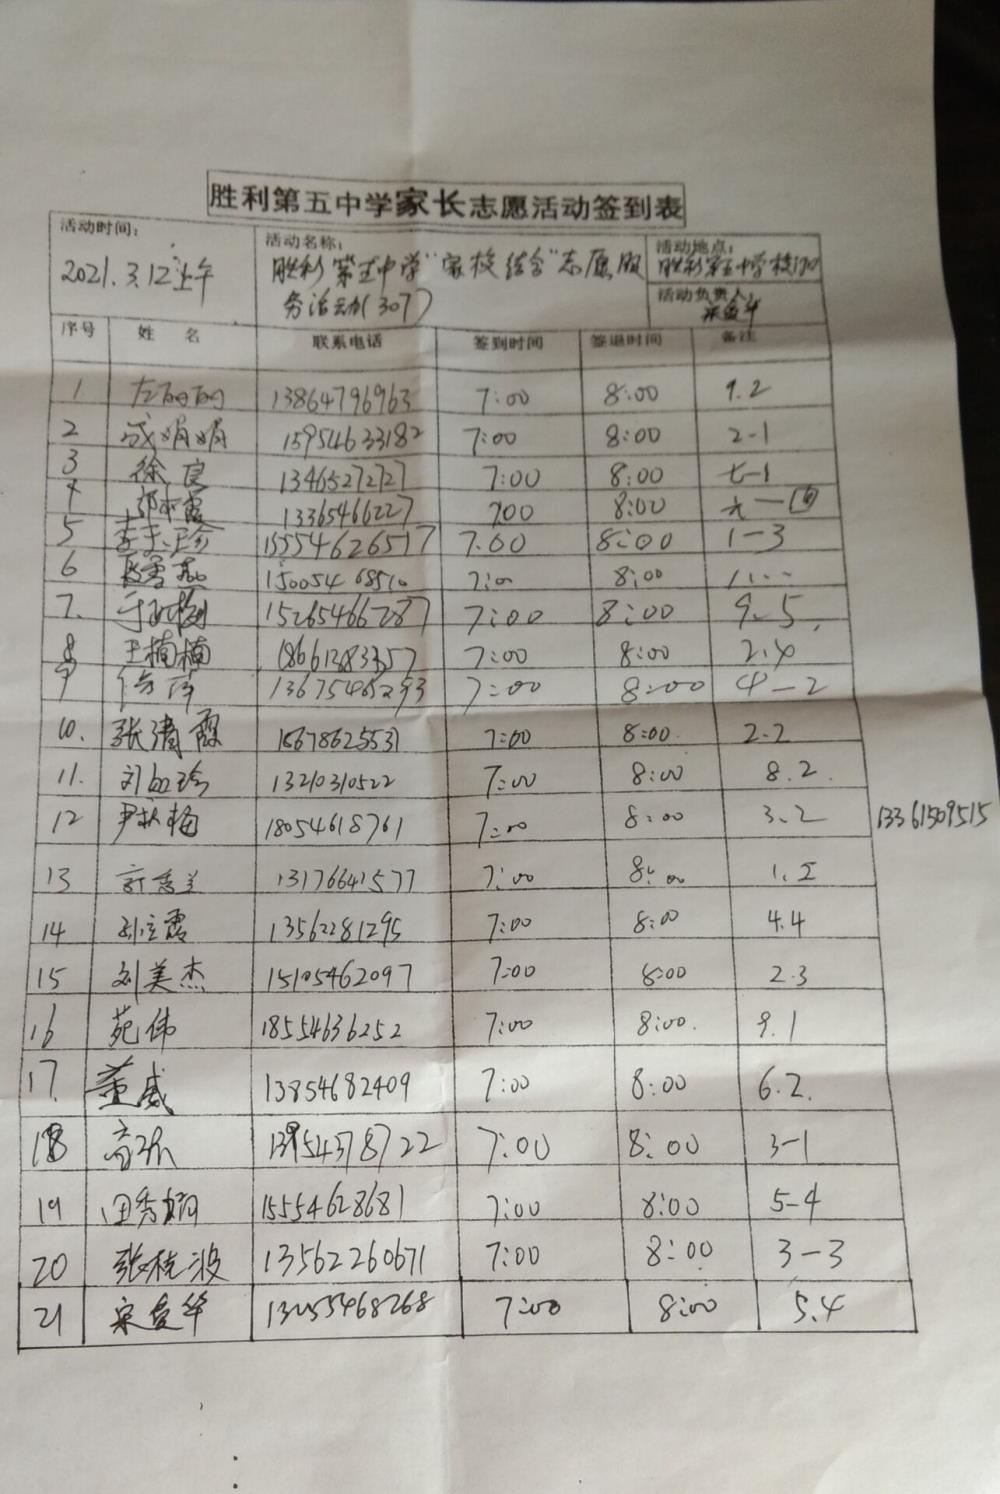 胜利第五中学家长志愿活动签到表
活动时间: 2021.3.12上午
活动名称: 胜利第五中学"家校结合"志愿服务活动(307)
活动地点: 胜利第五中学校门口
活动负责人: 宋爱华
序号 姓名 联系电话 签到时间 签退时间 备注
1 左丽丽 13864796963 7:00 8:00 9.2
2 成娟娟 15954633182 7:00 8:00 2-1
3 徐良 13465272727 7:00 8:00 七-1
4 13365466227 700 8:00
5 15554626517 7.00 8:00 1-3
6 15005468510 7:00 8:00
7. 15265466787 7:00 8:00 9.5
8 王楠楠 7:00 8:00 2.4
9 13675465293 7:00 8:00 4-2
10. 张清霞 7:00 8:00 2.2
11. 刘 珍 13210310522 7:00 8:00 8.2
12 尹秋梅 18054618761 7:00 8:00 3.2 13361509515
13 13176641577 7:00 8:00
14 刘立霞 13562281295 7:00 8:00 4.4
15 刘美杰 15105462097 7:00 8:00 2.3
16 苑伟 18554636252 7:00 8:00. 9.1
17. 董威 13854682409 7:00 8:00 6.2.
18 13954378722 7:00 8:00 3-1
19 田秀娟 15554628681 7:00 8:00 5-4
20 张桂波 13562260671 7:00 8:00 3-3
21 宋爱华 7:00 8:00 5.4